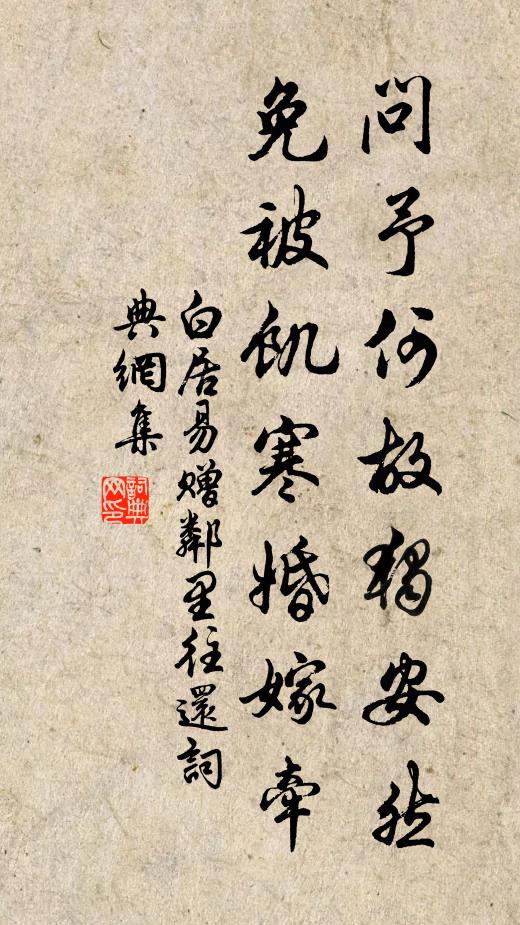 問予何故獨安然
免被飢寒婚嫁牽
白居易贈鄰里往還詞
典網集
詞典
网印